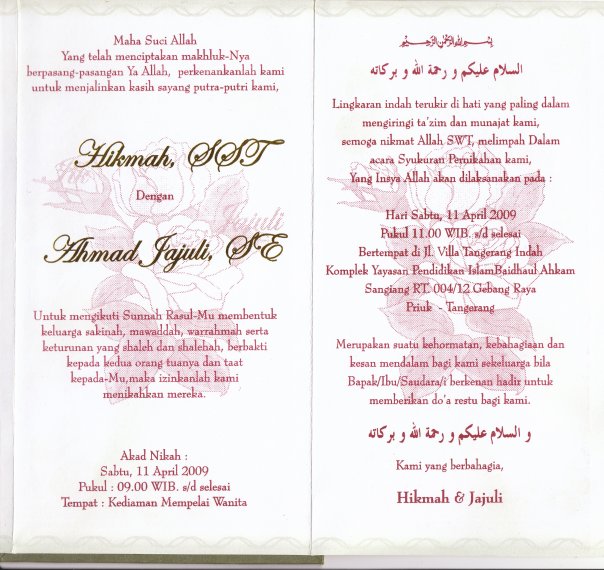 Maha Suci Allah
Yang telah menciptakan makhluk-Nya
berpasang-pasangan Ya Allah, perkenankanlah kami
untuk menjalinkan kasih sayang putra-putri kami,
Hikmah, SST
Dengan
Jajuli
Ahmad Jajuli, SE
Untuk mengikuti Sunnah Rasul-Mu membentuk
keluarga sakinah, mawaddah, warrahmah serta
keturunan yang shaleh dan shalehah, berbakti
kepada kedua orang tuanya dan taat
kepada-Mu,maka izinkanlah kami
menikahkan mereka.
Akad Nikah :
Sabtu, 11 April 2009
Pukul : 09.00 WIB. s/d selesai
Tempat : Kediaman Mempelai Wanita
بسم الله الرحمن الرحيم
السلام عليكم و رحمة الله و بركاته
Lingkaran indah terukir di hati yang paling dalam
mengiringi ta'zim dan munajat kami,
semoga nikmat Allah SWT, melimpah Dalam
acara Syukuran Pernikahan kami,
Yang Insya Allah akan dilaksanakan pada :
Hari Sabtu, 11 April 2009
Pukul 11.00 WIB. s/d selesai
Bertempat di Jl. Villa Tangerang Indah
Komplek Yayasan Pendidikan IslamBaidhaul Ahkam
Sangiang RT. 004/12 Gebang Raya
Priuk - Tangerang
Merupakan suatu kehormatan, kebahagiaan dan
kesan mendalam bagi kami sekeluarga bila
Bapak/Ibu/Saudara/i berkenan hadir untuk
memberikan do'a restu bagi kami.
و السلام عليكم و رحمة الله و بركاته
Kami yang berbahagia,
Hikmah & Jajuli